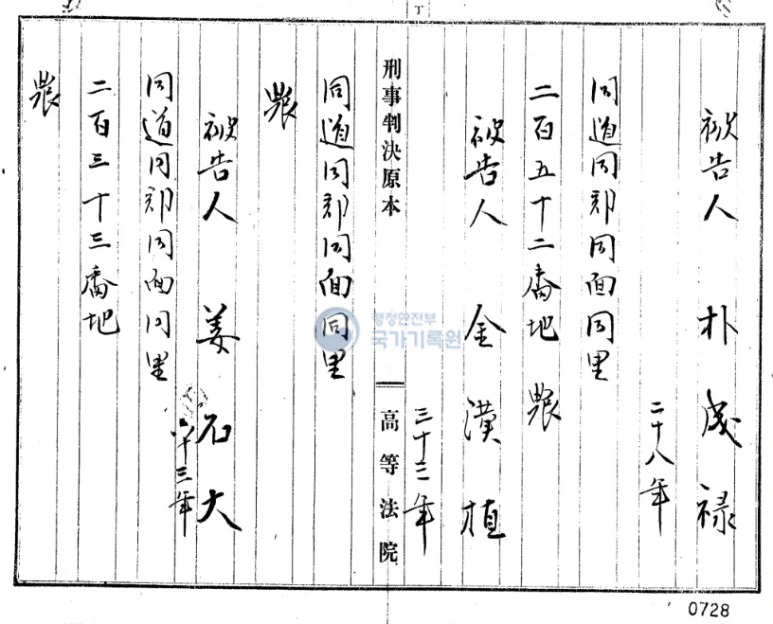 被告人 朴成祿
二十八年
同道同郡同面同里
二百五十二番地 農
被告人 金漢植
三十三年
刑事判決原本
高等法院
同道同郡同面同里
農
被告人 姜石大
六十三年
同道同郡同面同里
二百三十三番地
農
행정안전부
국가기록원
0728